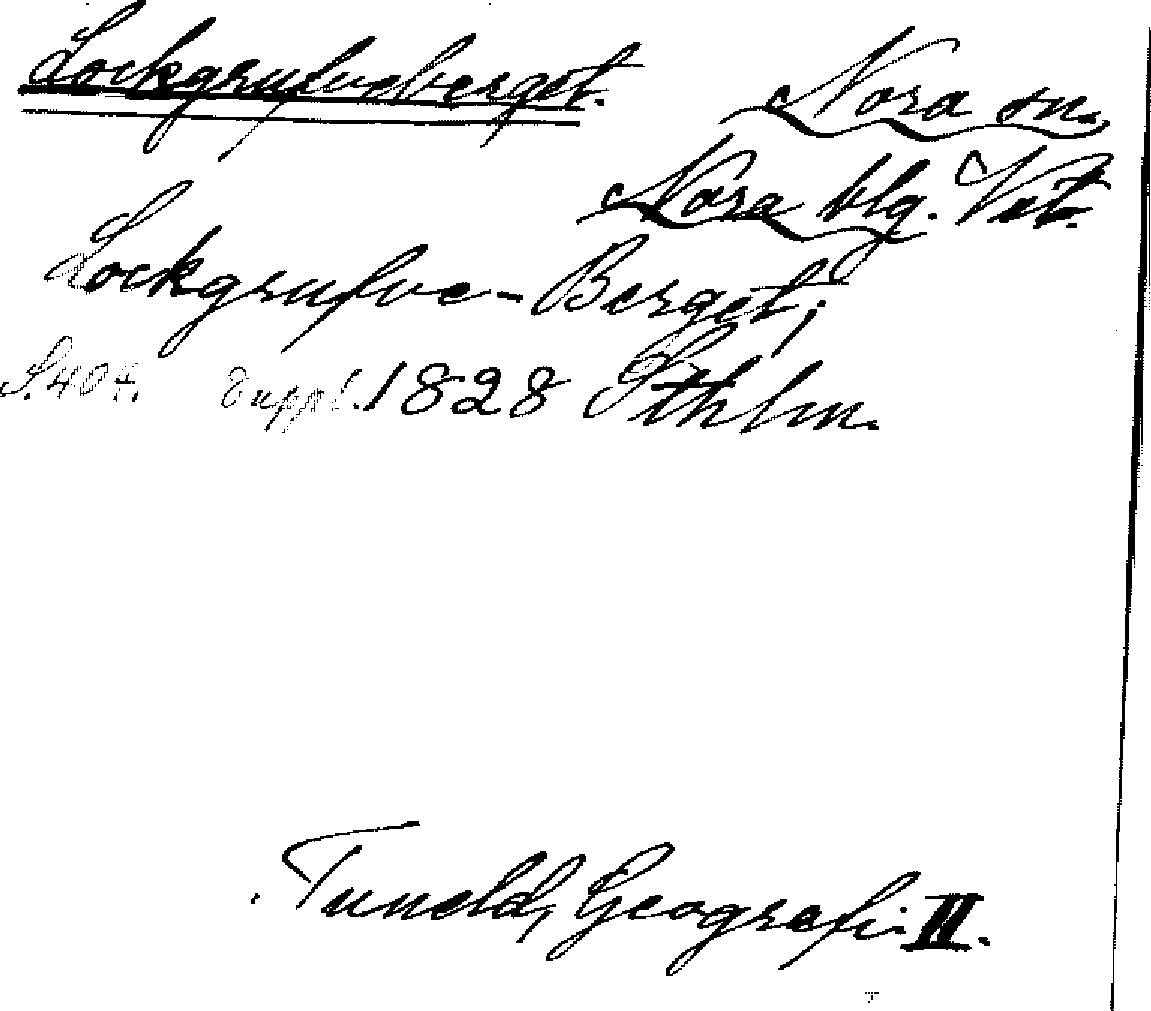 Lockgrufveberget.
Nora sn.
Nora blg. Vstm.
Lockgrufve-Berget;
S. 404. Suppl. 1828 Sthlm.
Tuneld, Geografi II.